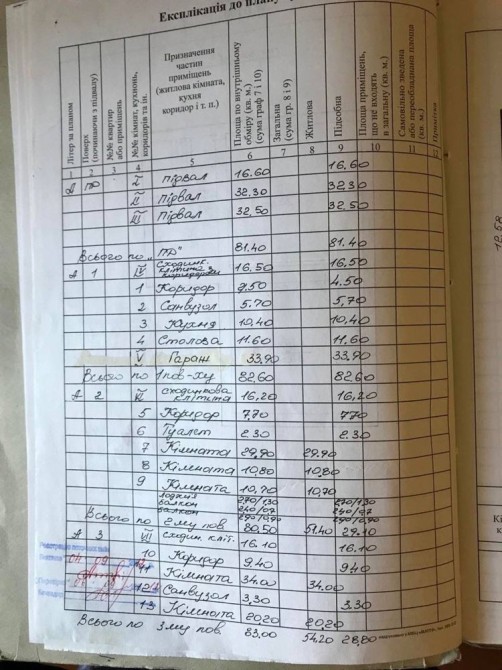 Експлікація до плану
Літер за планом
Поверх (починаючи з підвалу)
№№ квартир або приміщень
№№ кімнат, кухонь, коридорів та ін.
Призначення частин приміщень (житлова кімната, кухня коридор і т. п.)
Площа по внутрішньому обміру (кв. м.) (сума граф 7 і 10)
Загальна (сума гр. 8 і 9)
Житлова
Підсобна
Площа приміщень, що не входять в загальну (кв. м.)
Самовільно зведена або переобладнана площа (кв. м.)
Примітка
1 2 3 4 5 6 7 8 9 10
А ПД I підвал 16.60 16.60
II підвал 32.30 32.30
III підвал 32,50 32,50
Всього по "ПД" 81.40 81.40
А 1 IV сходинк. клітина з коридором 16.50 16.50
1 Коридор 4.50
2 Санвузол 5.70 5,70
3 Кухня 10,40 10,40
4 Столова 11.60 11.60
V Гараж 33,90 33,90
Всього по 1 пов-ху 82,60 82,60
А 2 VI сходинкова клітина 16,20 16,20
5 Коридор 7,70 7,70
6 Туалет 2.30 2.30
7 Кімната 29,90 29.90
8 Кімната 10,80 10,80
9 Кімната 10,70 10,70
лоджия
балкон
балкон
Всього по 2му пов. 80,50 51.40 29.10
А 3 VII сходин. кліт. 16.10 16.10
10 Коридор 9.40 9.40
11 Кімната 34.00 34.00
12 Санвузол 3,30 3.30
13 Кімната 20,20 20,20
Всього по 3му пов. 83,00 54.20 28,80
12.58